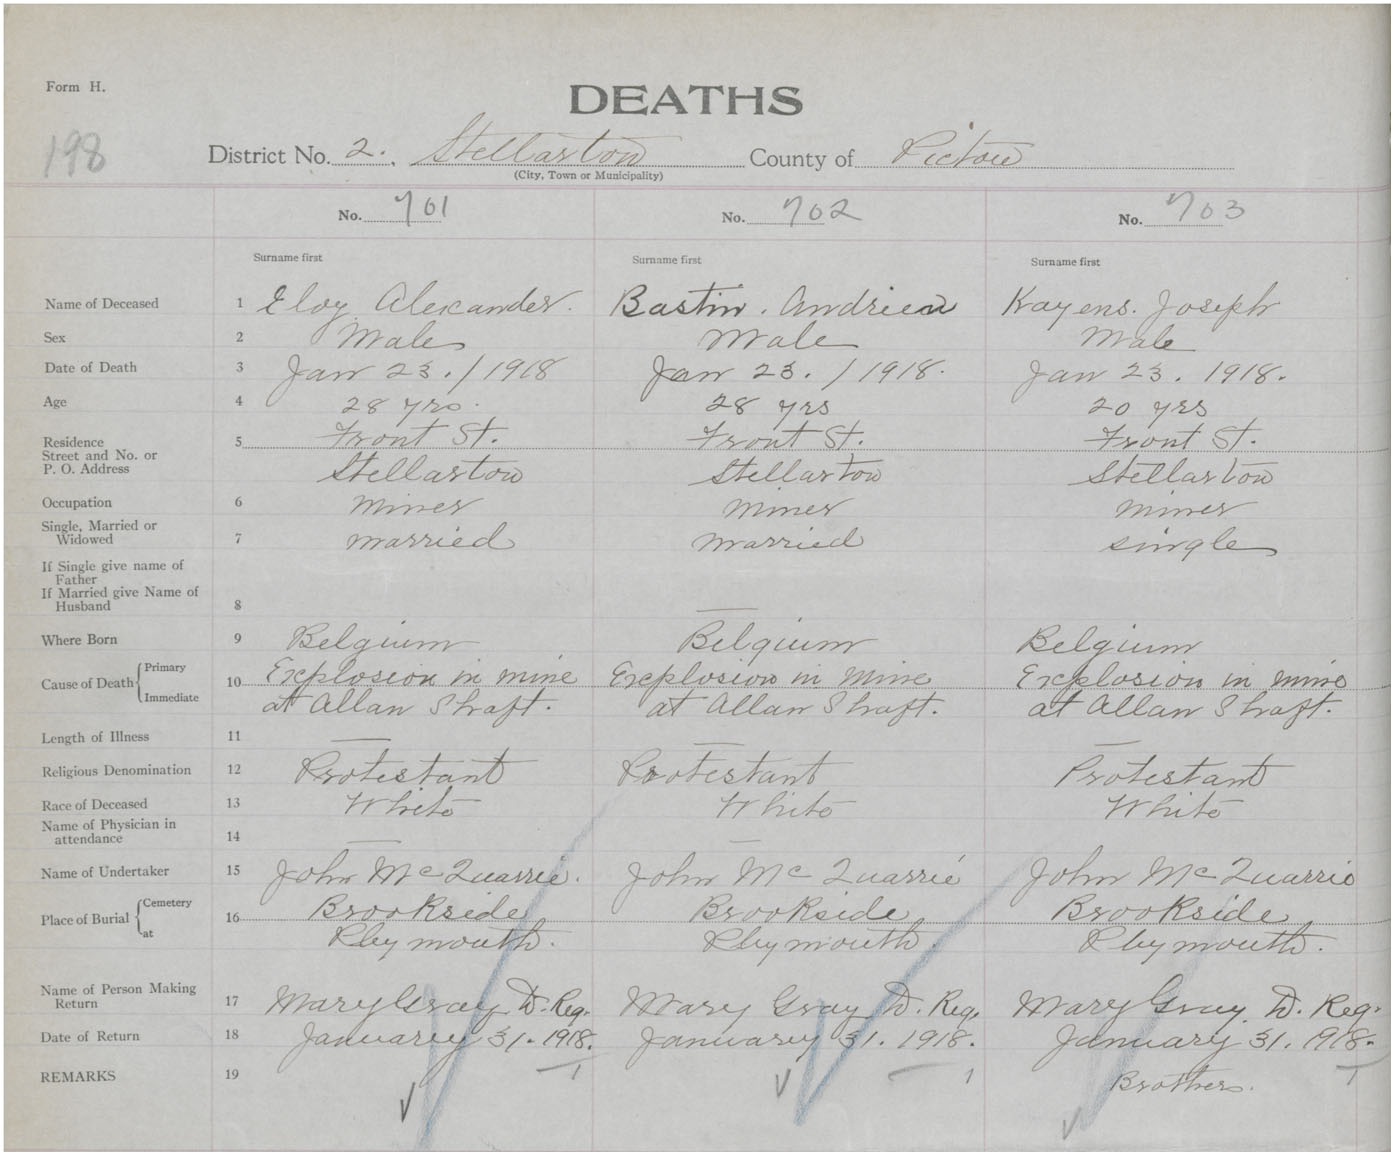 Form H.
DEATHS
198
District No. 2. , Stellarton County of Pictou
(City, Town or Municipality)
No. 701 No. 702 No. 703
Surname first Surname first Surname first
Name of Deceased 1 Eloy Alexander. Bastin. Andrien Kayens. Joseph
Sex 2 Male Male Male
Date of Death 3 Jan 23. / 1918 Jan 23. / 1918. Jan 23. 1918.
Age 4 28 yrs. 28 yrs 20 yrs
Residence 5 Front St. Front St. Front St.
Street and No. or
P. O. Address Stellarton Stellarton Stellarton
Occupation 6 Miner Miner Miner
Single, Married or
Widowed 7 married married single
If Single give name of
Father
If Married give Name of
Husband 8 —
Where Born 9 Belgium Belgium Belgium
Cause of Death { Primary 10 Explosion in mine Explosion in mine Explosion in mine
Immediate at Allan Shaft. at Allan Shaft. at Allan Shaft.
Length of Illness 11 — — —
Religious Denomination 12 Protestant Protestant Protestant
Race of Deceased 13 White White White
Name of Physician in
attendance 14 — —
Name of Undertaker 15 John McQuarrie. John McQuarrie John McQuarrie
Place of Burial { Cemetery 16 Brookside Brookside Brookside
at Plymouth. Plymouth. Plymouth.
Name of Person Making
Return 17 Mary Gray D. Reg. Mary Gray D. Reg. Mary Gray. D. Reg.
Date of Return 18 January 31. 1918. January 31. 1918. January 31. 1918.
REMARKS 19 1 1 1
Brothers.